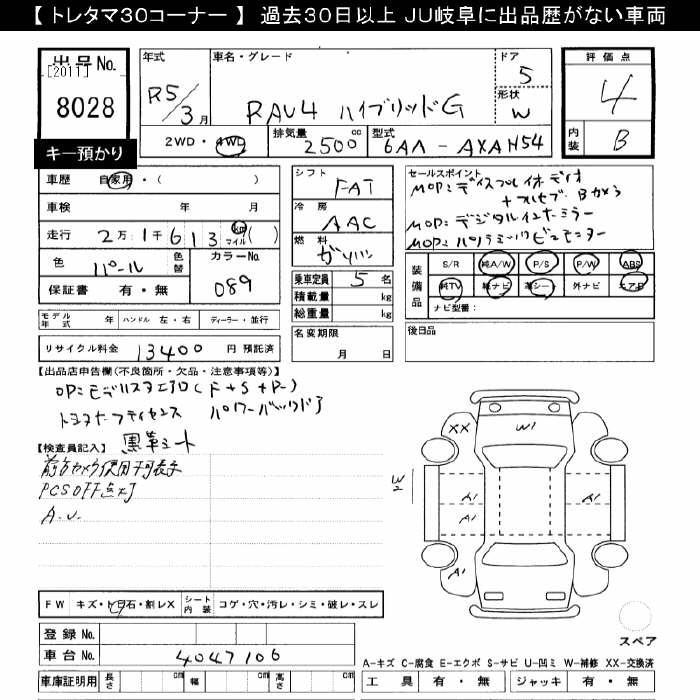 【トレタマ30コーナー】 過去30日以上 JU岐阜に出品歴がない車両
出品No.
[2011]
8028
キー預かり
年式 車名・グレード ドア
R5/3月 RAV4 ハイブリッドG 5
形状
W
2WD・4WD 排気量 2500 cc 型式 6AA - AXAH54
評価点
4
内装 B
車歴 自家用・( )
車検 年 月
走行 2万1千613 km マイル ( )
色 パール 色替 カラーNo. 089
保証書 有・無
シフト FAT
冷房 AAC
燃料 ガソリン
乗車定員 5 名
積載量 kg
総重量 kg
名変期限
月 日
セールスポイント
MOP:ディスプレイオーディオ
+フルセグ Bカメラ
MOP:デジタルインナーミラー
MOP:パノラミックビューモニター
装備品 S/R 純A/W P/S P/W ABS
純TV 純ナビ 革シート 外ナビ エアB
ナビ型番:
後日品
モデル年式 年 ハンドル 左・右 ディーラー・並行
リサイクル料金 13400 円 預託済
【出品店申告欄(不良箇所・欠品・注意事項等)】
OP:モデリスタエアロ(F+S+R)
トヨタセーフティセンス パワーバックドア
黒革シート
【検査員記入】
前方カメラ使用不可表示
PCSOFF点灯
A.U.
FW キズ・ト石・割レX シート内装 コゲ・穴・汚レ・シミ・破レ・スレ
登録No.
車台No. 4047106
車庫証明用 長さ cm 幅 cm 高さ cm
XX W1
W2
A1 A1
A1
A1
スペア
A-キズ C-腐食 E-エクボ S-サビ U-凹ミ W-補修 XX-交換済
工具 有・無 ジャッキ 有・無